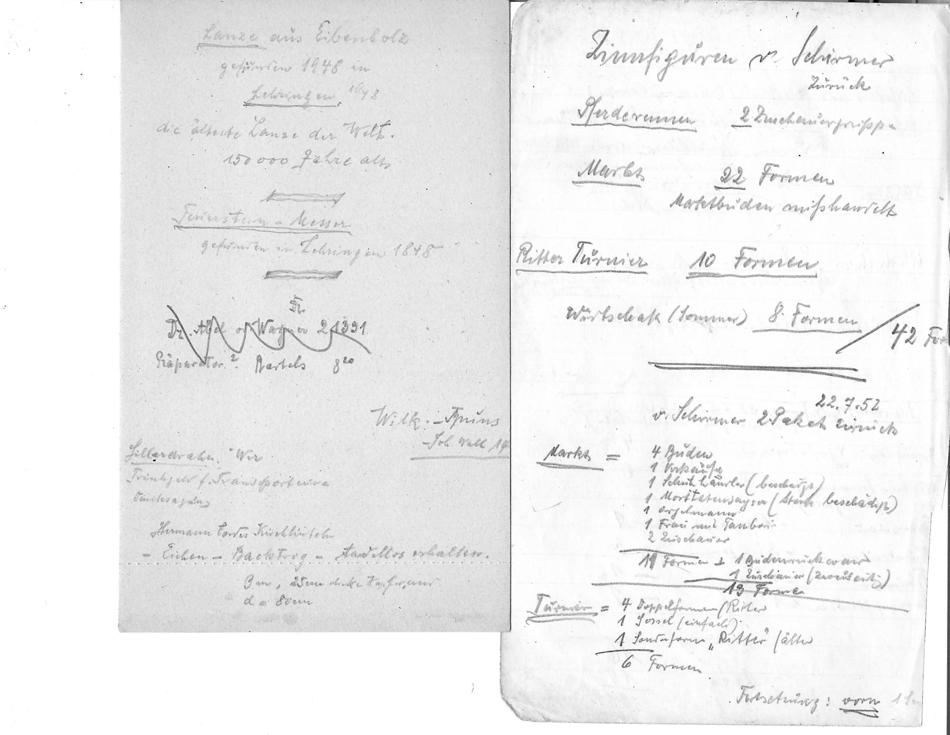 Lanze aus Eibenholz
gefunden 1948 in
Lehringen 1948
die älteste Lanze der Welt.
150 000 Jahre alt
Feuerstein-Messer
gefunden in Lehringen 1848
Dr.
Dr. Wagner 2 1391
Präparator? Bartels 8²⁰
Wilk.
Joh
Hermann Cordes
- Eichen - Backtrog - Tadellos erhalten.
3 m, 25 cm dicke
d = 80 cm
Zinnfiguren v. Schirmer
Zurück
Pferderennen 2 Zuschauergruppe
Markt 22 Formen
Marktbuden mißhandelt
Ritter Turnier 10 Formen
Wirtschaft (Sommer) 8 Formen
42 For
22.7.52
v. Schirmer 2 Paket zurück
Markt = 4 Buden
1 Verkäufer
1 (beschädigt)
1 Moritatensänger (stark beschädigt)
1 Orgelmann
1 Frau mit Tambour
2 Zuschauer
11 Formen + 1 Budenrückwand
1 Zuschauer (zweiseitig)
13 Formen
Turnier = 4 Doppelformen/Ritter
1 Sessel (einfach)
1 Sonderform "Ritter" / älter
6 Formen.
Fortsetzung: vorn